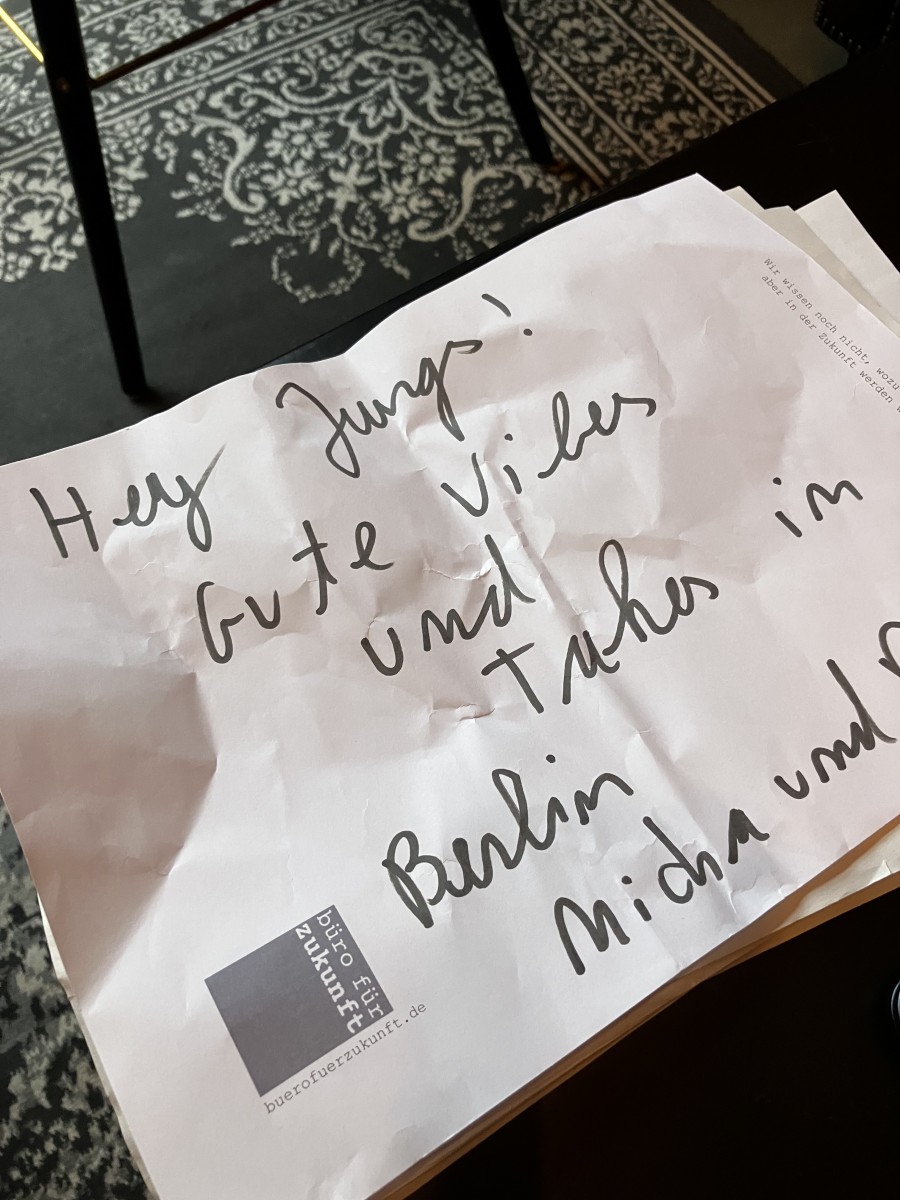 Hey Jungs!
Gute Vibes
und
Takes in
Berlin
Micha und
Wir wissen noch nicht, wozu
aber in der Zukunft werden
büro für
zukunft
buerofuerzukunft.de